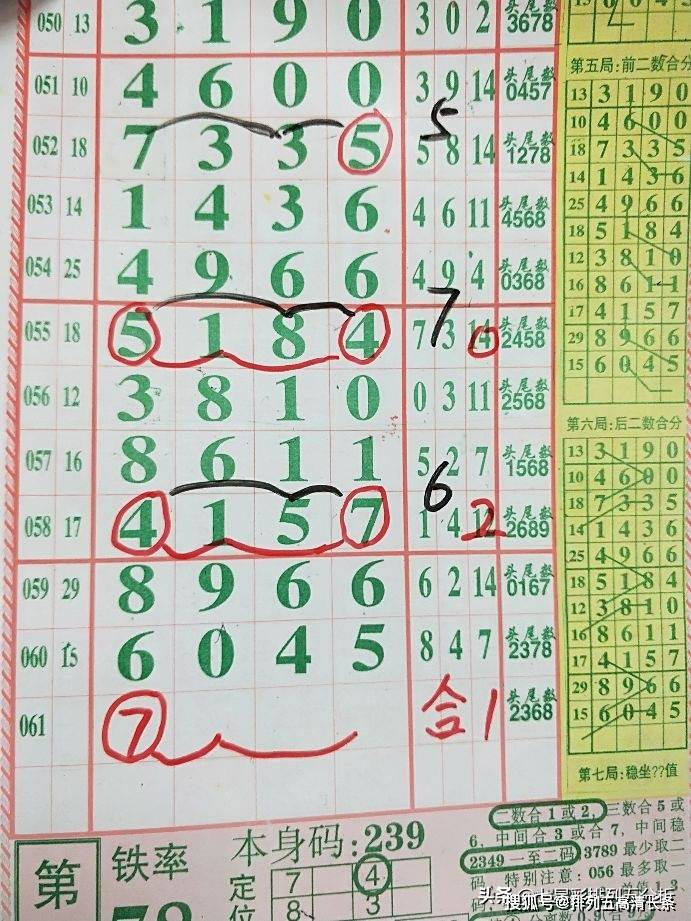 050 13 3 1 9 0 3 0 2 头尾数 3678
051 10 4 6 0 0 3 9 14 头尾数 0457
5
052 18 7 3 3 5 5 8 14 头尾数 1278
053 14 1 4 3 6 4 6 11 头尾数 4568
054 25 4 9 6 6 4 9 4 头尾数 0368
7
055 18 5 1 8 4 7 3 14 头尾数 2458
056 12 3 8 1 0 0 3 11 头尾数 2568
057 16 8 6 1 1 5 2 7 头尾数 1568
6
058 17 4 1 5 7 1 4 2 头尾数 2689
059 29 8 9 6 6 6 2 14 头尾数 0167
060 15 6 0 4 5 8 4 7 头尾数 2378
061 7 合1 头尾数 2368
第五局:前二数合分
13 3 1 9 0
10 4 6 0 0
18 7 3 3 5
14 1 4 3 6
25 4 9 6 6
18 5 1 8 4
12 3 8 1 0
16 8 6 1 1
17 4 1 5 7
29 8 9 6 6
15 6 0 4 5
第六局:后二数合分
13 3 1 9 0
10 4 6 0 0
18 7 3 3 5
14 1 4 3 6
25 4 9 6 6
18 5 1 8 4
12 3 8 1 0
16 8 6 1 1
17 4 1 5 7
29 8 9 6 6
15 6 0 4 5
第七局:稳坐??值
第 铁率
本身码:239
定位
7 4
8 3
二数合1或2,三数合5或
6,中间合3或合7,中间稳
2349一至二码 3789最少取二
特别注意:056最多取一
搜狐号@排列五高清长条